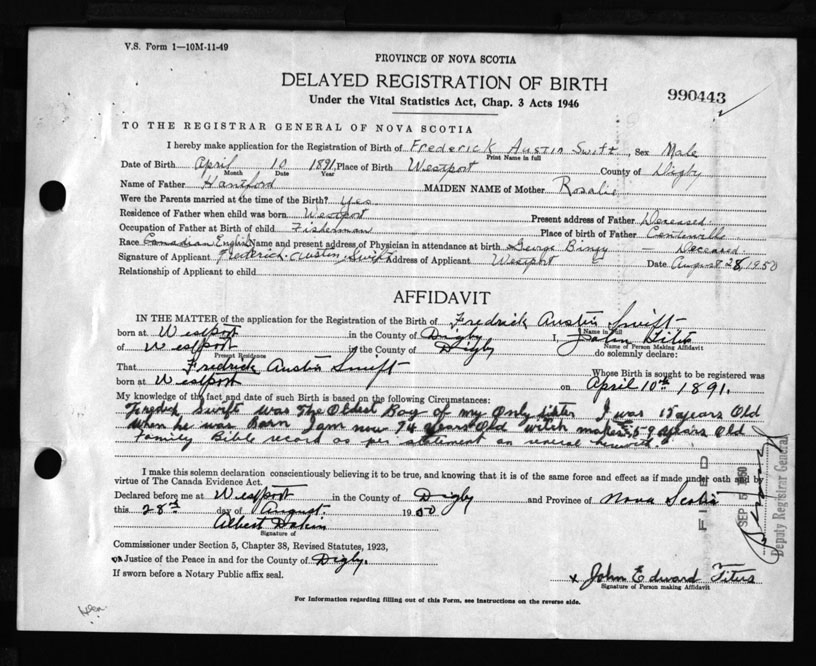 V.S. Form 1—10M-11-49
PROVINCE OF NOVA SCOTIA
DELAYED REGISTRATION OF BIRTH
990443
Under the Vital Statistics Act, Chap. 3 Acts 1946
TO THE REGISTRAR GENERAL OF NOVA SCOTIA
I hereby make application for the Registration of Birth of Frederick Austin Swift, Sex Male
Print Name in full
Date of Birth April 10 1891, Place of Birth Westport County of Digby
Month Date Year
Name of Father Hantford MAIDEN NAME of Mother Rosalie
Were the Parents married at the time of the Birth? Yes
Residence of Father when child was born Westport Present address of Father Deceased.
Occupation of Father at Birth of child Fisherman Place of birth of Father Centeville
Race Canadian English Name and present address of Physician in attendance at birth George Bingy — Deceased
Signature of Applicant Frederick Austin Swift Address of Applicant Westport Date August 28, 1950
Relationship of Applicant to child
AFFIDAVIT
IN THE MATTER of the application for the Registration of the Birth of Fredrick Austin Swift
Name in Full
born at Westport in the County of Digby I, John Titus
Name of Person Making Affidavit
of Westport in the County of Digby do solemnly declare:
Present Residence
That Fredrick Austin Swift Whose Birth is sought to be registered was
born at Westport on April 10th 1891.
My knowledge of the fact and date of such Birth is based on the following Circumstances:
Fredrick Swift was The Oldest Boy of my Only sister I was 15 years Old
When he was Born I am now 74 years Old witch makes 59 years Old
Family Bible record as per statement on herewith.
I make this solemn declaration conscientiously believing it to be true, and knowing that it is of the same force and effect as if made under oath and by
virtue of The Canada Evidence Act.
Declared before me at Westport in the County of Digby and Province of Nova Scotia
this 28th day of August. 1950
Albert Dakin
Signature of
Commissioner under Section 5, Chapter 38, Revised Statutes, 1923,
or Justice of the Peace in and for the County of Digby.
If sworn before a Notary Public affix seal.
x John Edward Titus
Signature of Person making Affidavit
FILED
SEP 5 1950
Deputy Registrar General
For Information regarding filling out of this Form, see instructions on the reverse side.